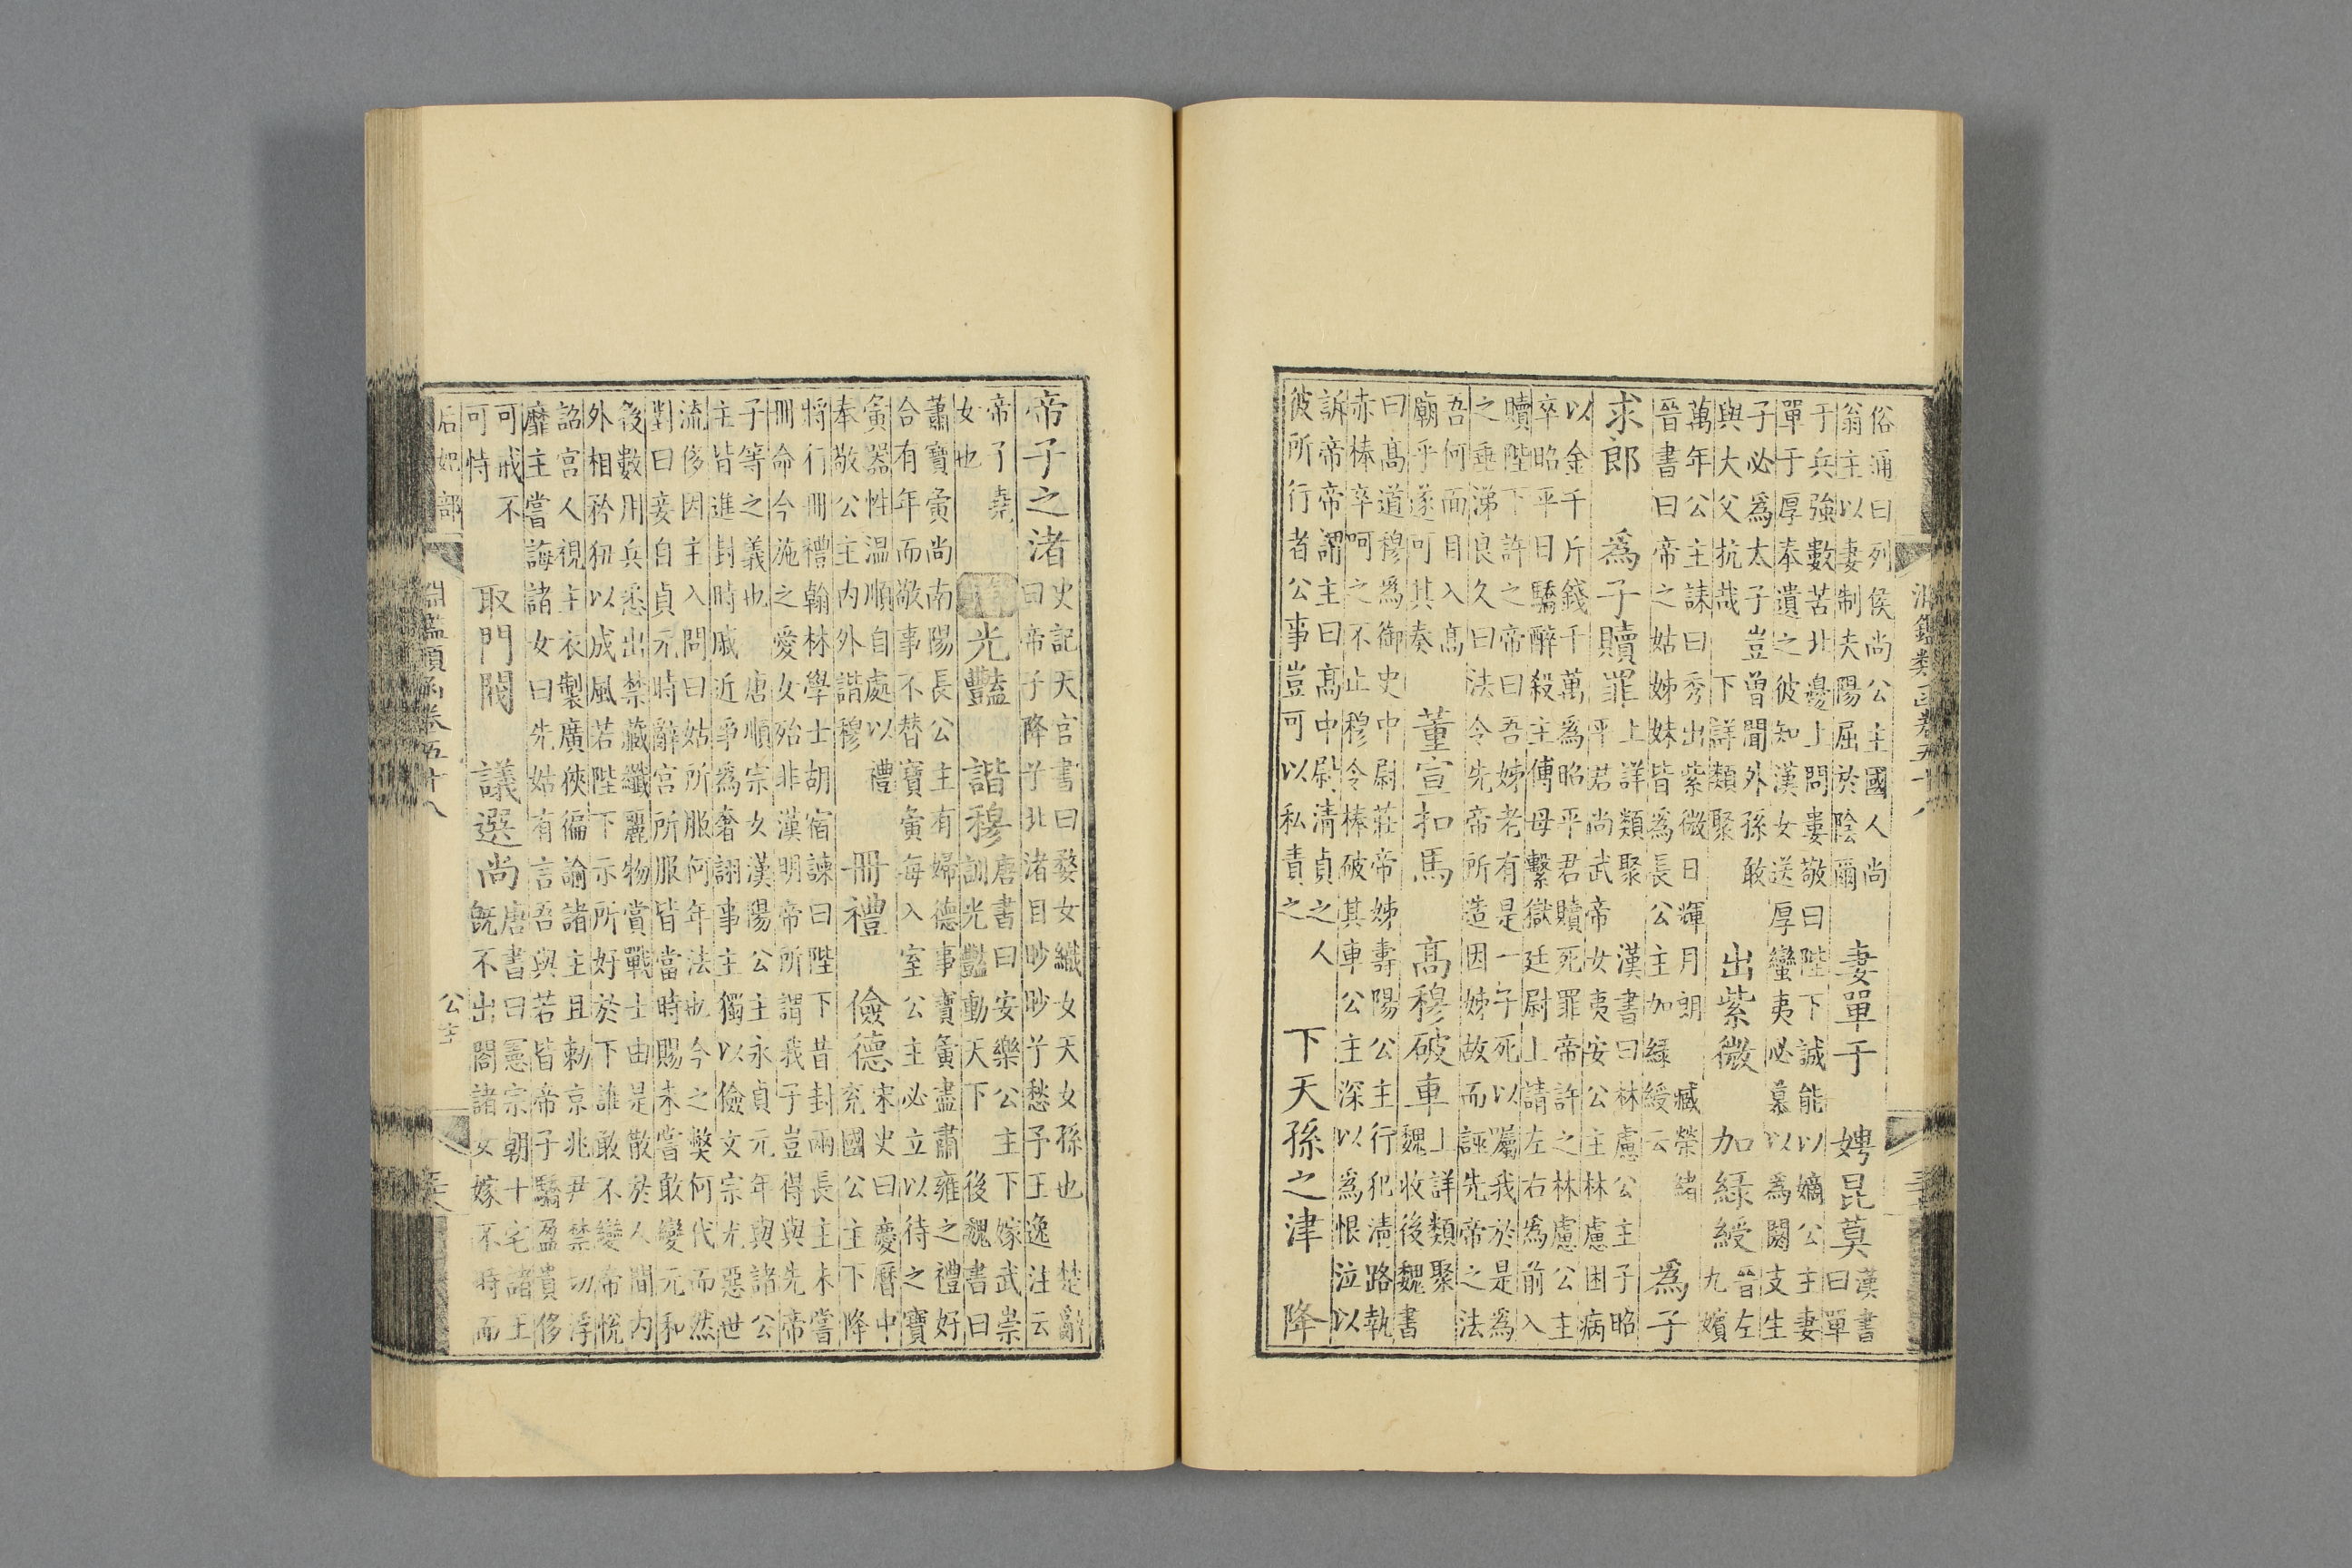 淵鑑類函卷五十八
俗通曰列侯尚公主國人尚
翁主以妻制夫陽屈於陰爾
妻單于　娉昆莫
漢書
曰單
于兵強數苦北邊上問婁敬曰陛下誠能以嫡公主妻
單于厚奉遺之彼知漢女送厚蠻夷必慕以為閼支生
子必為太子豈曾聞外孫敢
與大父抗哉　下詳類聚
出紫微　加緑綬
晉左
九嬪
萬年公主誄曰秀出紫微日輝月朗　臧榮緒
晉書曰帝之姑姊妹皆為長公主加緑綬云
為子
求郎　為子贖罪
上詳類聚　漢書曰林慮公主子昭
平君尚武帝女夷安公主林慮困病
以金千斤錢千萬為昭平君贖死罪帝許之林慮公主
卒昭平日驕醉殺主傅母繫獄廷尉上請左右為前入
贖陛下許之帝曰吾姊老有是一子死以屬我於是為
之垂涕良久曰法令先帝所造因姊故而誣先帝之法
吾何面目入髙
廟乎遂可其奏
董宣扣馬　髙穆破車
上詳類聚
魏收後魏書
曰髙道穆為御史中尉莊帝姊壽陽公主行犯清路執
赤棒卒呵之不止穆令棒破其車公主深以為恨泣以
訴帝帝謂主曰髙中尉清貞之人
彼所行者公事豈可以私責之
下天孫之津　降
帝子之渚
史記天官書曰婺女織女天女孫也　楚辭
曰帝子降兮北渚目眇眇兮愁予王逸注云
帝子堯
女也
光豔　諧穆
唐書曰安樂公主下嫁武崇
訓光豔動天下　後魏書曰
蕭寶夤尚南陽長公主有婦德事寶夤盡肅雍之禮好
合有年而敬事不替寶夤每入室公主必立以待之寶
夤器性温順自處以禮
奉敬公主内外諧穆
冊禮　儉德
宋史曰慶曆中
兗國公主下降
將行冊禮翰林學士胡宿諫曰陛下昔封兩長主未嘗
冊命今施之愛女殆非漢明帝所謂我子豈得與先帝
子等之義也　唐順宗女漢陽公主永貞元年與諸公
主皆進封時戚近爭為奢詡事主獨以儉文宗尤惡世
流侈因主入問曰姑所服何年法也今之獘何代而然
對曰妾自貞元時辭宮所服皆當時賜未嘗敢變元和
後數用兵悉出禁藏纖麗物賞戰士由是散於人間内
外相矜狃以成風若陛下示所好於下誰敢不變帝悅
詔宮人視主衣製廣狹徧諭諸主且勅京兆尹禁切浮
靡主嘗誨諸女曰先姑有言吾與若皆帝子驕盈貴侈
可戒不
可恃
取門閥　議選尚
唐書曰憲宗朝十宅諸王
既不出閣諸女嫁不時而
后妃部　淵鑑類函卷五十八　公主